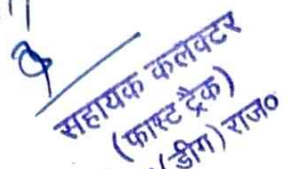 सहायक कलेक्टर
(फास्ट ट्रैक)
(डीग) राज०